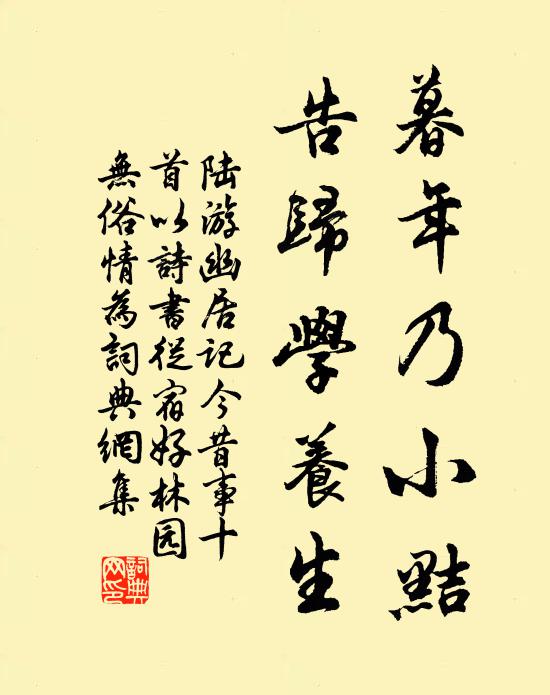 暮年乃小黠
告歸學養生
陆游幽居记今昔事十
首以詩書從宿好林园
無俗情為詞典網集
詞典网印